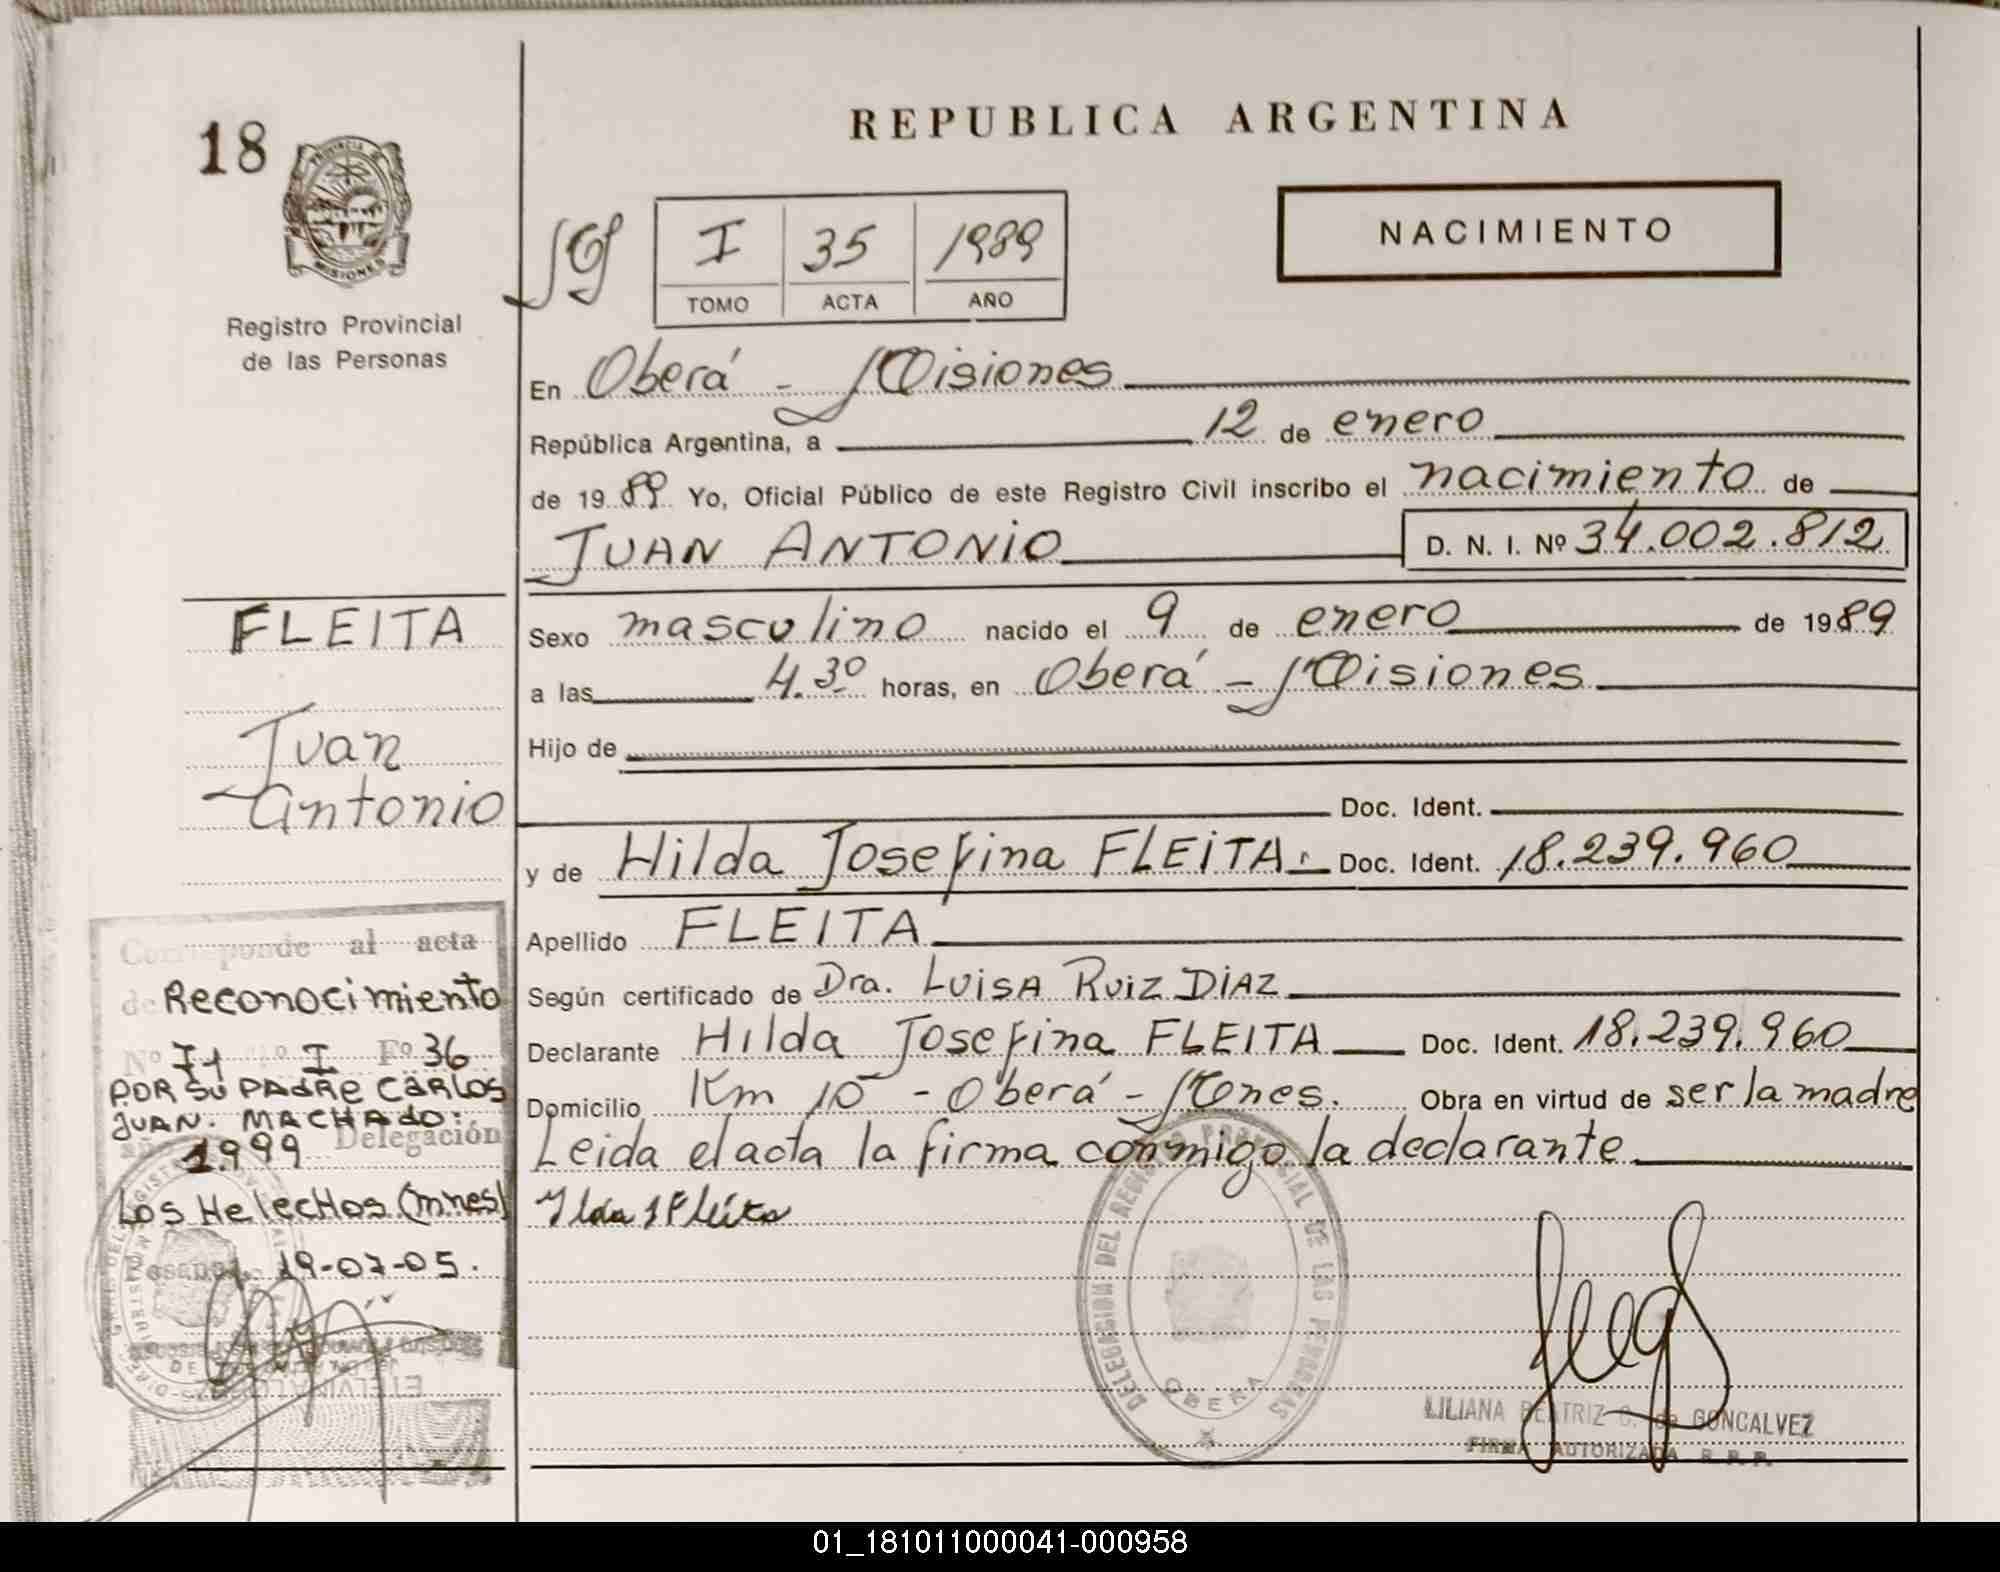 REPUBLICA ARGENTINA
18
PROVINCIA DE
MISIONES
Registro Provincial
de las Personas
NACIMIENTO
I 35 1989
TOMO ACTA AÑO
En Oberá - Misiones
República Argentina, a 12 de enero
de 1989 Yo, Oficial Público de este Registro Civil inscribo el nacimiento de
JUAN ANTONIO D. N. I. Nº 34.002.812
FLEITA
Juan
Antonio
Sexo masculino nacido el 9 de enero de 1989
a las 4.30 horas, en Oberá - Misiones
Hijo de
Doc. Ident.
y de Hilda Josefina FLEITA Doc. Ident. 18.239.960
Apellido FLEITA
Según certificado de Dra. LUISA RUIZ DIAZ
Declarante Hilda Josefina FLEITA Doc. Ident. 18.239.960
Domicilio Km 10 - Oberá - Mnes. Obra en virtud de ser la madre
Leida el acta la firma conmigo la declarante
Ilda J Fleita
Corresponde al acta
de Reconocimiento
Nº 71 Tº I Fº 36
POR SU PADRE CARLOS
JUAN. MACHADO:
1999 Delegación
Los Helechos (mnes)
Posadas, 19-07-05.
DELEGACION DEL REGISTRO PROVINCIAL DE LAS PERSONAS
OBERA
LILIANA BEATRIZ C. de GONCALVEZ
FIRMA AUTORIZADA R. P. P.
01_181011000041-000958